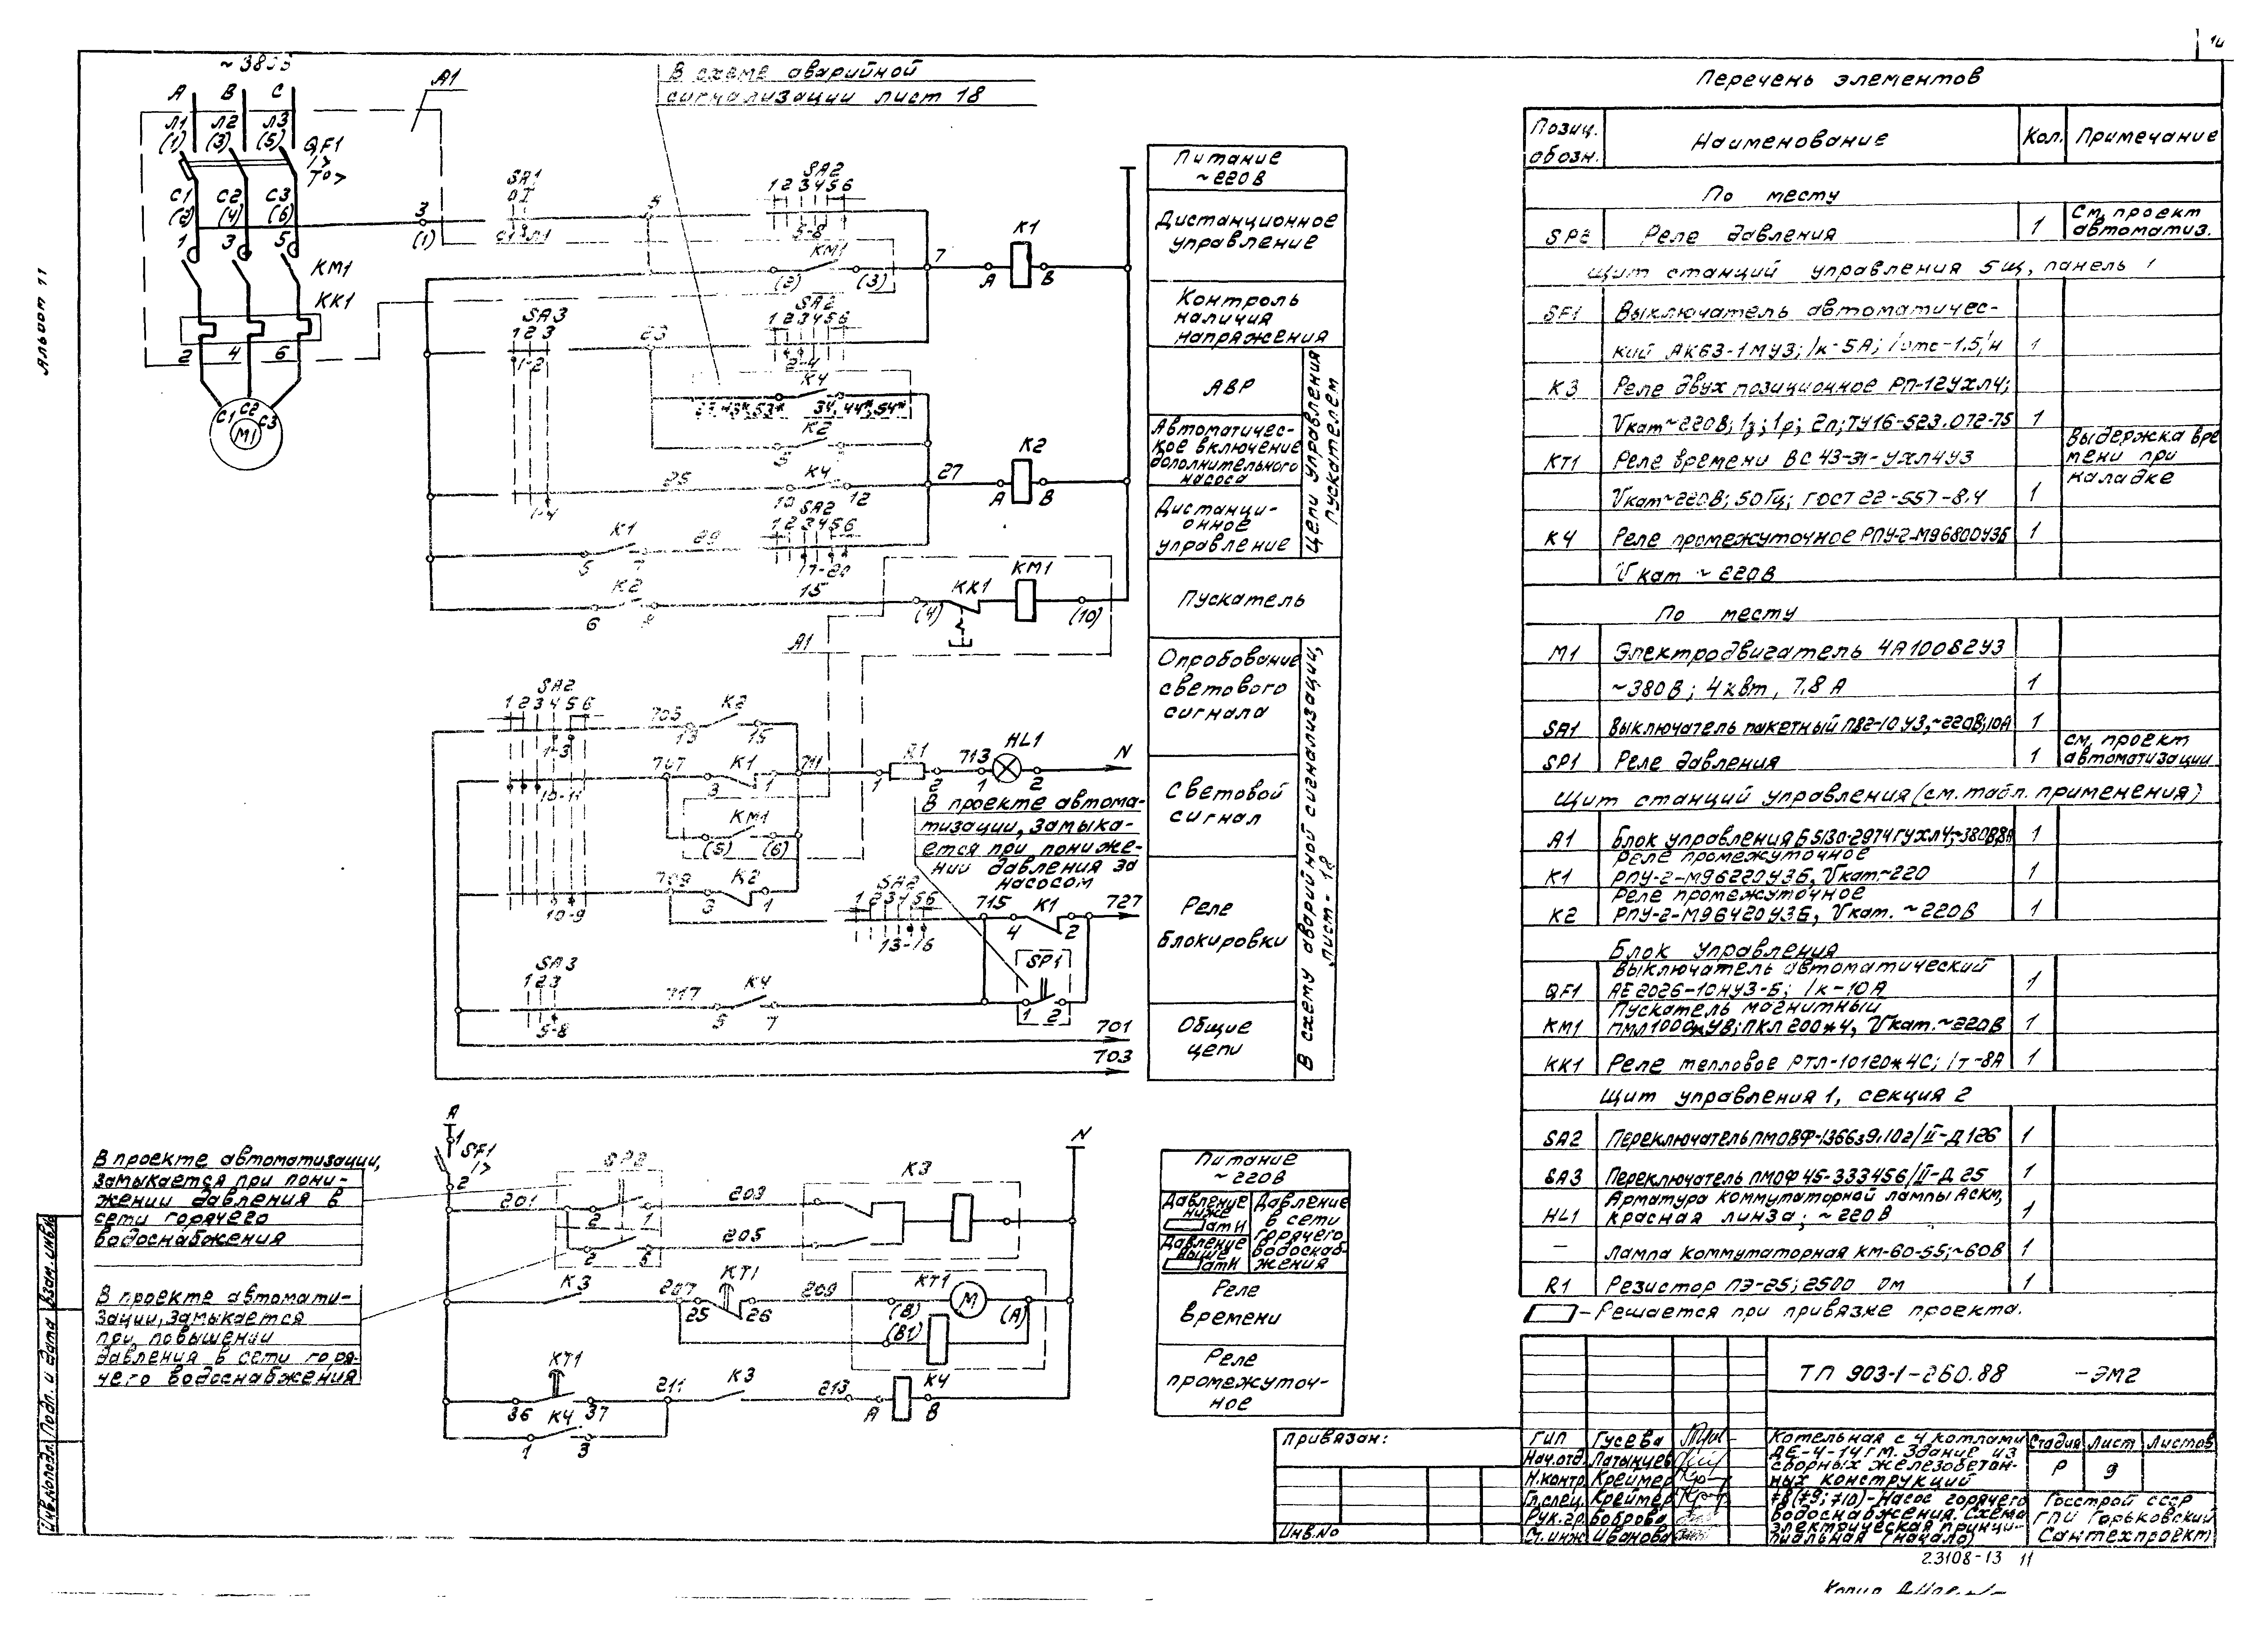 Альбом 11
А1
В схеме аварийной
сигнализации лист 18
А В С
Л1 Л2 Л3
(1) (3) (5)
QF1
I>
С1 С2 С3
(2) (4) (6)
1 3 5
КМ1
КК1
2 4 6
С1 С2 С3
М1
3
(1)
SA1
SA2
1 2 3 4 5 6
5-8
КМ1
(2) (3)
7
К1
А В
SA3
1 2 3
1-2
23
SA2
1 2 3 4 5 6
2-4
К4
34, 44*, 54*
К2
К2
25
К4
10 12
27
А В
1-4
SA2
1 2 3 4 5 6
К1
5 7
29
17-20
К2
6 8
15
(4)
КК1
КМ1
(10)
А1
Питание
~220В
Дистанционное
управление
Контроль
наличия
напряжения
АВР
Автоматичес-
кое включение
дополнительного
насоса
Дистанци-
онное
управление
Цепи управления
пускателем
Пускатель
Опробование
светового
сигнала
Световой
сигнал
Реле
блокировки
Общие
цепи
В схему аварийной сигнализации,
лист - 18
SA2
1 2 3 4 5 6
1-3
705
К2
13 15
707
К1
3 1
711
10-11
R1
1 2
713
HL1
1 2
N
КМ1
(5) (6)
709
К2
3 1
10-9
В проекте автома-
тизации, замыка-
ется при пониже-
нии давления за
насосом
SA2
1 2 3 4 5 6
13-16
715
К1
4 2
727
SP1
1 2
SA3
1 2 3
5-8
717
К4
5 7
701
703
А
1
SF1
I>
2
В проекте автоматизации,
замыкается при пони-
жении давления в
сети горячего
водоснабжения
В проекте автомати-
зации, замыкается
при повышении
давления в сети горя-
чего водоснабжения
201
SP2
2 1
203
К3
205
N
К3
207
КТ1
25 26
209
КТ1
(В)
М
(А)
(В1)
КТ1
36 37
211
К3
213
К4
А В
К4
1 3
Питание
~220В
Давление
ниже
ати
Давление
выше
ати
Давление
в сети
горячего
водоснаб-
жения
Реле
времени
Реле
промежуточ-
ное
Перечень элементов
Позиц.
обозн.
Наименование
Кол.
Примечание
По месту
SP2 Реле давления 1 См. проект
автоматиз.
Щит станций управления 5щ, панель 1
SF1 Выключатель автоматичес-
кий АК63-1МУ3; Iк-5А; Iотс-1,5Iн 1
К3 Реле двух позиционное РП-12УХЛ4;
Uкат~220В; 1з; 1р; 2п; ТУ16-523.072-75 1
КТ1 Реле времени ВС43-31-УХЛ4У3
Выдержка вре
мени при
наладке
Uкат~220В; 50Гц; ГОСТ 22-557-84 1
К4 Реле промежуточное РПУ-2-М96800У3Б 1
Uкат ~ 220В
По месту
М1 Электродвигатель 4А100S2У3
~380В; 4кВт, 7.8 А 1
SA1 Выключатель пакетный ПВ2-10У3, ~220В; 10А 1
SP1 Реле давления 1 см. проект
автоматизации
Щит станций управления (см. табл. применения)
А1 Блок управления Б5130-2974ГУХЛ4; ~380В, 8А 1
К1 Реле промежуточное
РПУ-2-М96220У3Б, Uкат.~220 1
К2 Реле промежуточное
РПУ-2-М96420У3Б, Uкат. ~220В 1
Блок управления
QF1 Выключатель автоматический
АЕ2026-10НУ3-Б; Iк-10А 1
КМ1 Пускатель магнитный
ПМЛ1000*УВ; ПКЛ200*4, Uкат.~220В 1
КК1 Реле тепловое РТЛ-10120*4С; Iт-8А 1
Щит управления 1, секция 2
SA2 Переключатель ПМОВФ-136639.102/II-Д126 1
SA3 Переключатель ПМОФ45-333456/II-Д25 1
HL1 Арматура коммутаторной лампы АСКМ,
красная линза; ~220В 1
— Лампа коммутаторная КМ-60-55; ~60В 1
R1 Резистор ПЭ-25; 2500 Ом 1
- Решается при привязке проекта.
ТП 903-1-260.88 -ЭМ2
Привязан:
Инв.№
ГИП Гусева
Нач.отд. Латынцев
Н.контр. Креймер
Гл.спец. Креймер
Рук.гр. Боброва
Ст.инж. Иванова
Котельная с 4 котлами
ДЕ-4-14ГМ. Здание из
сборных железобетон-
ных конструкций
Стадия Лист Листов
Р 9
78(79; 710) - Насос горячего
водоснабжения. Схема
электрическая принци-
пиальная (начало)
Госстрой СССР
ГПИ Горьковский
Сантехпроект
23108-13 11
Инв.№подл. Подп. и дата Взам.инв.№